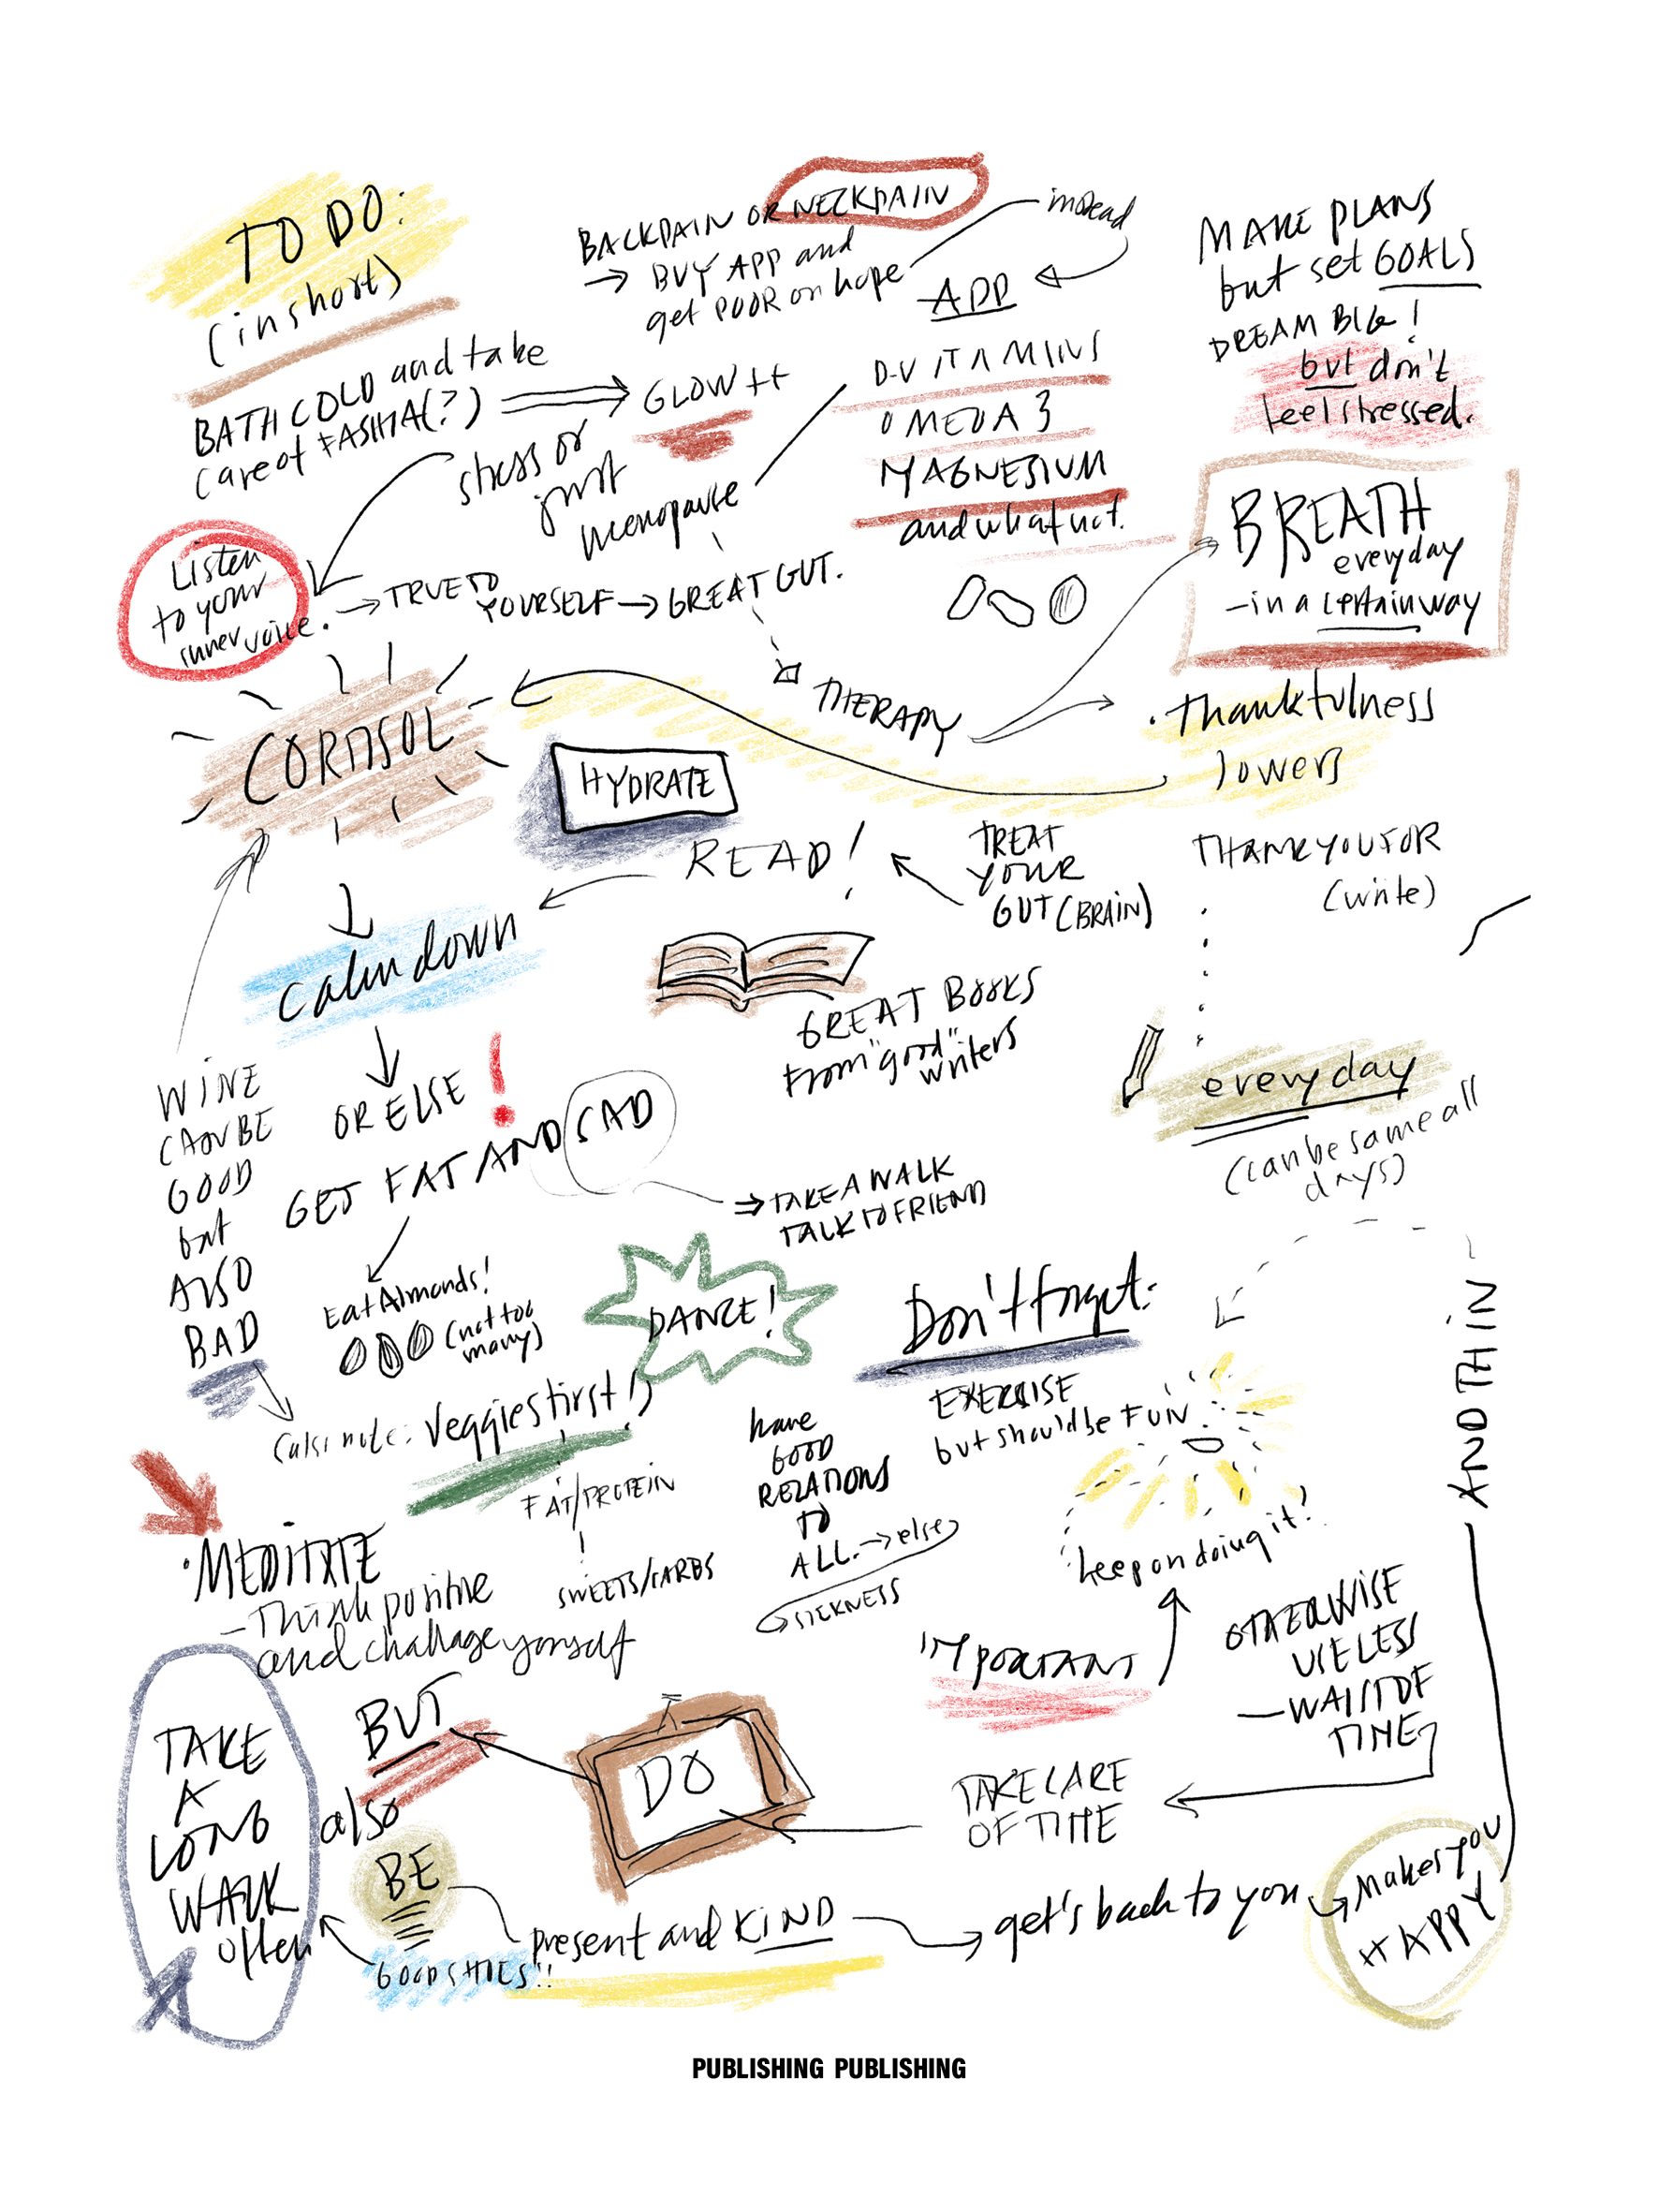 TO DO:
(in short)
BATH COLD and take
care of FASHIA(?)
BACKPAIN OR NECKPAIN
→ BUY APP and
get POOR on hope
instead
APP
GLOW ++
stress or
just
menopause
D-VITAMINS
OMEGA 3
MAGNESIUM
and what not.
MAKE PLANS
but set GOALS
DREAM BIG!
but don't
feel stressed.
BREATH
everyday
- in a certain way
Listen
to your
inner voice.
→ TRUE TO
YOURSELF → GREAT GUT.
THERAPY
• Thankfulness
lowers
CORTISOL
HYDRATE
READ!
TREAT
YOUR
GUT (BRAIN)
THANK YOU FOR
(write)
calm down
GREAT BOOKS
from "good"
writers
everyday
(can be same all
days)
WINE
CAN BE
GOOD
but
ALSO
BAD
OR ELSE !
GET FAT AND SAD
⇒ TAKE A WALK
TALK TO FRIEND
Eat Almonds!
(not too
many)
DANCE!
Don't forget:
EXERCISE
but should be FUN
keep on doing it!
(also note: Veggies first!)
FAT/PROTEIN
SWEETS/CARBS
have
GOOD
RELATIONS
TO
ALL. → else
SICKNESS
AND THIN
• MEDITATE
- Think positive
and challage yourself
IMPORTANT
OTHERWISE
USELESS
- WAIST OF
TIME
TAKE CARE
OF TIME
DO
BUT
also
BE
present and KIND
get's back to you
makes you
HAPPY
TAKE
A
LONG
WALK
often
GOOD SHOES!!
PUBLISHING PUBLISHING